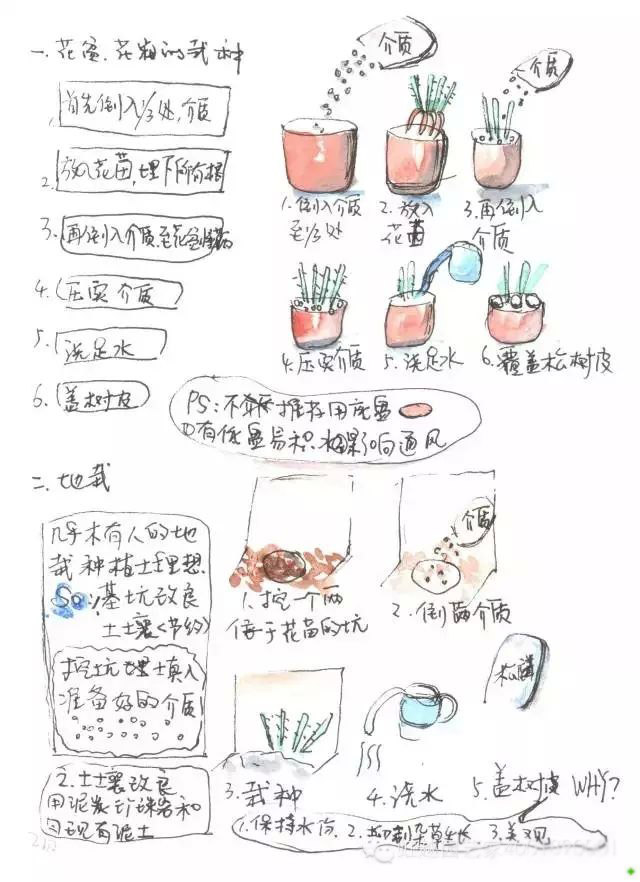 一、花盆、花箱的栽种
1.首先倒入1/3处,介质
2.放入花苗,埋下所有根
3.再倒入介质至花盆
4.压实介质
5.浇足水
6.盖树皮
介质
介质
1.倒入介质
至1/3处
2.放入
花苗
3.再倒入
介质
4.压实介质
5.浇足水
6.覆盖松树皮
PS:不推荐用底盘
有底盘易积水影响通风
二、地栽
几乎木有人的地
栽种植土理想
So:基坑改良
土壤<节约>
挖坑埋土填入
准备好的介质
2.土壤改良
用泥炭珍珠岩和
现有泥土
1.挖一个两
倍于花苗的坑
介质
2.倒两介质
3.栽种
4.浇水
松鳞
5.盖树皮 WHY?
1.保持水份 2.抑制杂草生长 3.美观